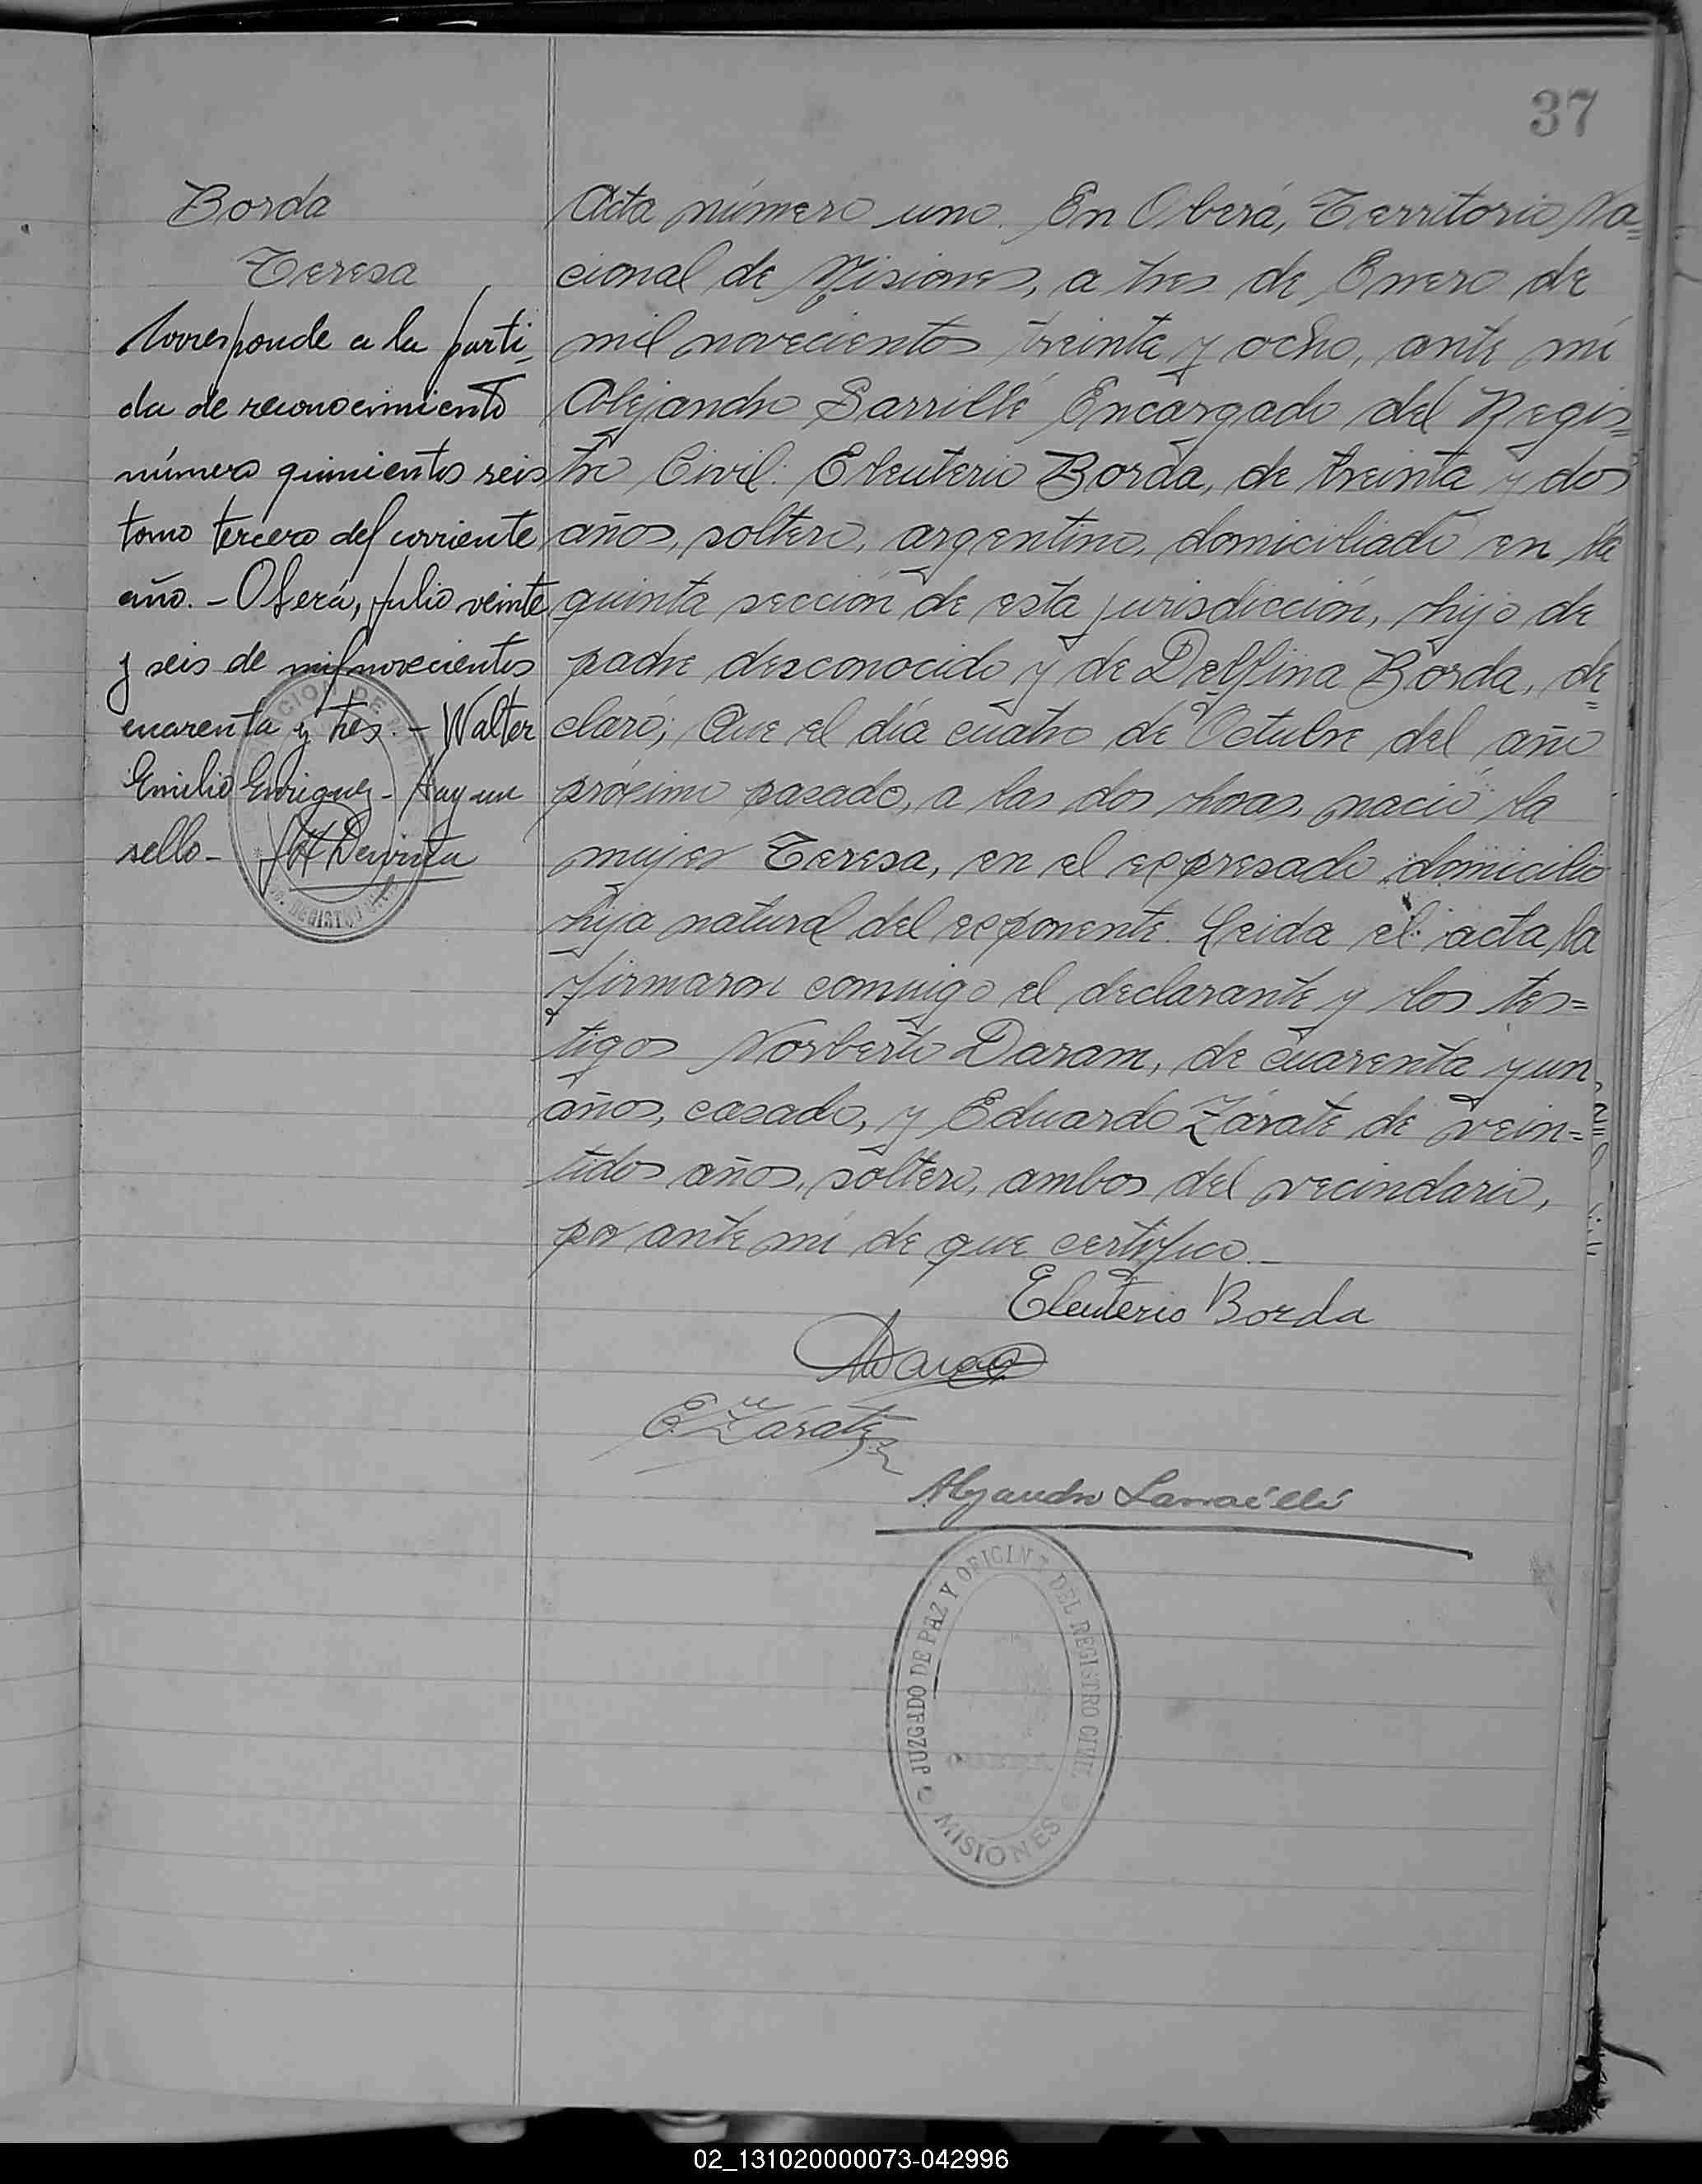 37
Borda
Teresa
Corresponde a la parti-
da de reconocimiento
número quinientos seis
tomo tercero del corriente
año. - Oberá, Julio veinte
y seis de mil novecientos
cuarenta y tres. - Walter
Emilio Enriquez - Hay un
sello -
Acta número uno. En Oberá, Territorio Na=
cional de Misiones, a tres de Enero de
mil novecientos treinta y ocho, ante mí
Alejandro Sarrillé Encargado del Regis=
tro Civil: Eleuterio Borda, de treinta y dos
años, soltero, argentino, domiciliado en la
quinta sección de esta jurisdicción, hijo de
padre desconocido y de Delfina Borda, de=
claró; Que el día cuatro de Octubre del año
próximo pasado, a las dos horas, nació la
mujer Teresa, en el expresado domicilio
hija natural del exponente. Leida el acta la
firmaron conmigo el declarante y los tes=
tigos Norberto Daram, de cuarenta y un
años, casado, y Eduardo Zárate de vein=
tidos años, soltero, ambos del vecindario,
por ante mí de que certifico.-
Eleuterio Borda
E. Zárate
Alejandro
JUZGADO DE PAZ Y OFICINA DEL REGISTRO CIVIL
MISIONES
02_131020000073-042996